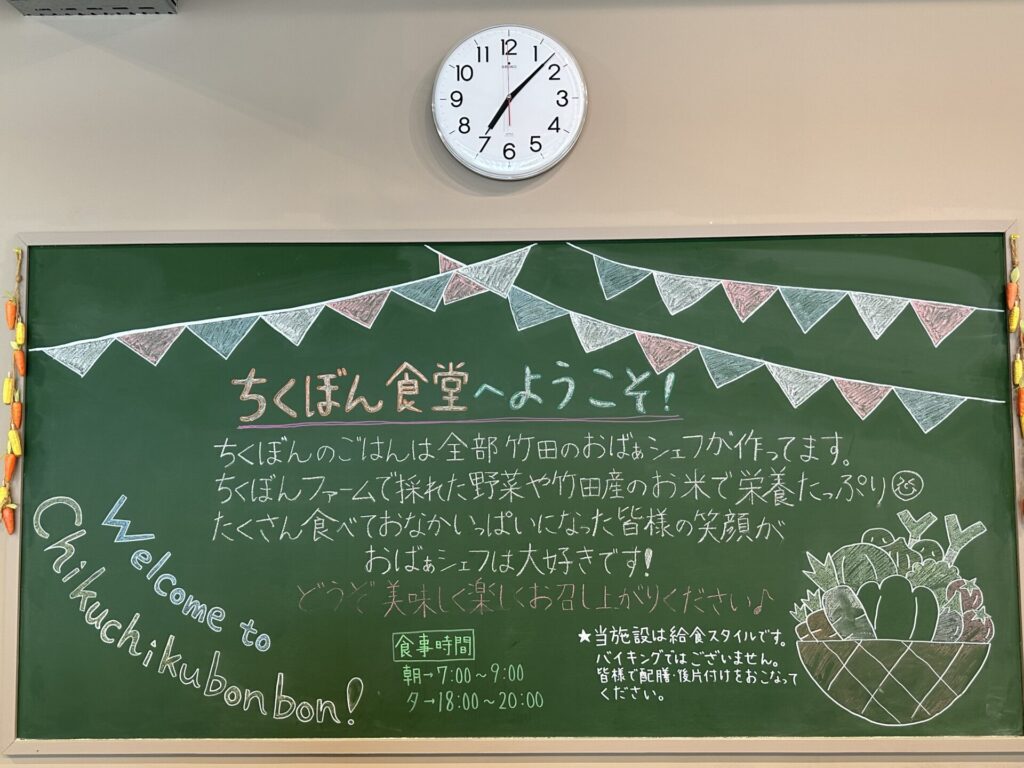 12
1
2
3
4
5
6
7
8
9
10
11
SEIKO
ちくぼん食堂へようこそ!
ちくぼんのごはんは全部竹田のおばぁシェフが作ってます。
ちくぼんファームで採れた野菜や竹田産のお米で栄養たっぷり
たくさん食べておなかいっぱいになった皆様の笑顔が
おばぁシェフは大好きです!
どうぞ美味しく楽しくお召し上がりください♪
Welcome to
Chikuchikubonbon!
食事時間
朝→7:00~9:00
夕→18:00~20:00
★当施設は給食スタイルです。
バイキングではございません。
皆様で配膳・後片付けをおこなって
ください。